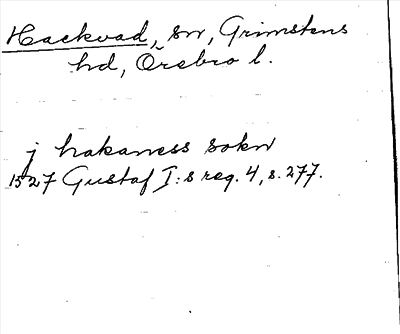 Hackvad, sn, Grimstens
hd, Örebro l.
j hakaness sokn
1527 Gustaf I:s reg. 4, s. 277.